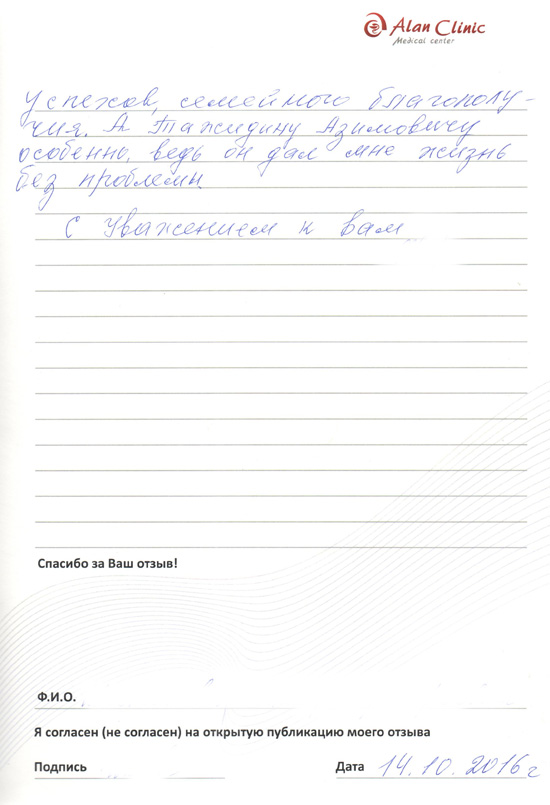 Alan Clinic
Medical center
успехов, семейного благополу-
чия. А Тажидину Азимовичу
особенно, ведь он дал мне жизнь
без проблем
С уважением к вам
Спасибо за Ваш отзыв!
Ф.И.О.
Я согласен (не согласен) на открытую публикацию моего отзыва
Подпись
Дата 14.10.2016г